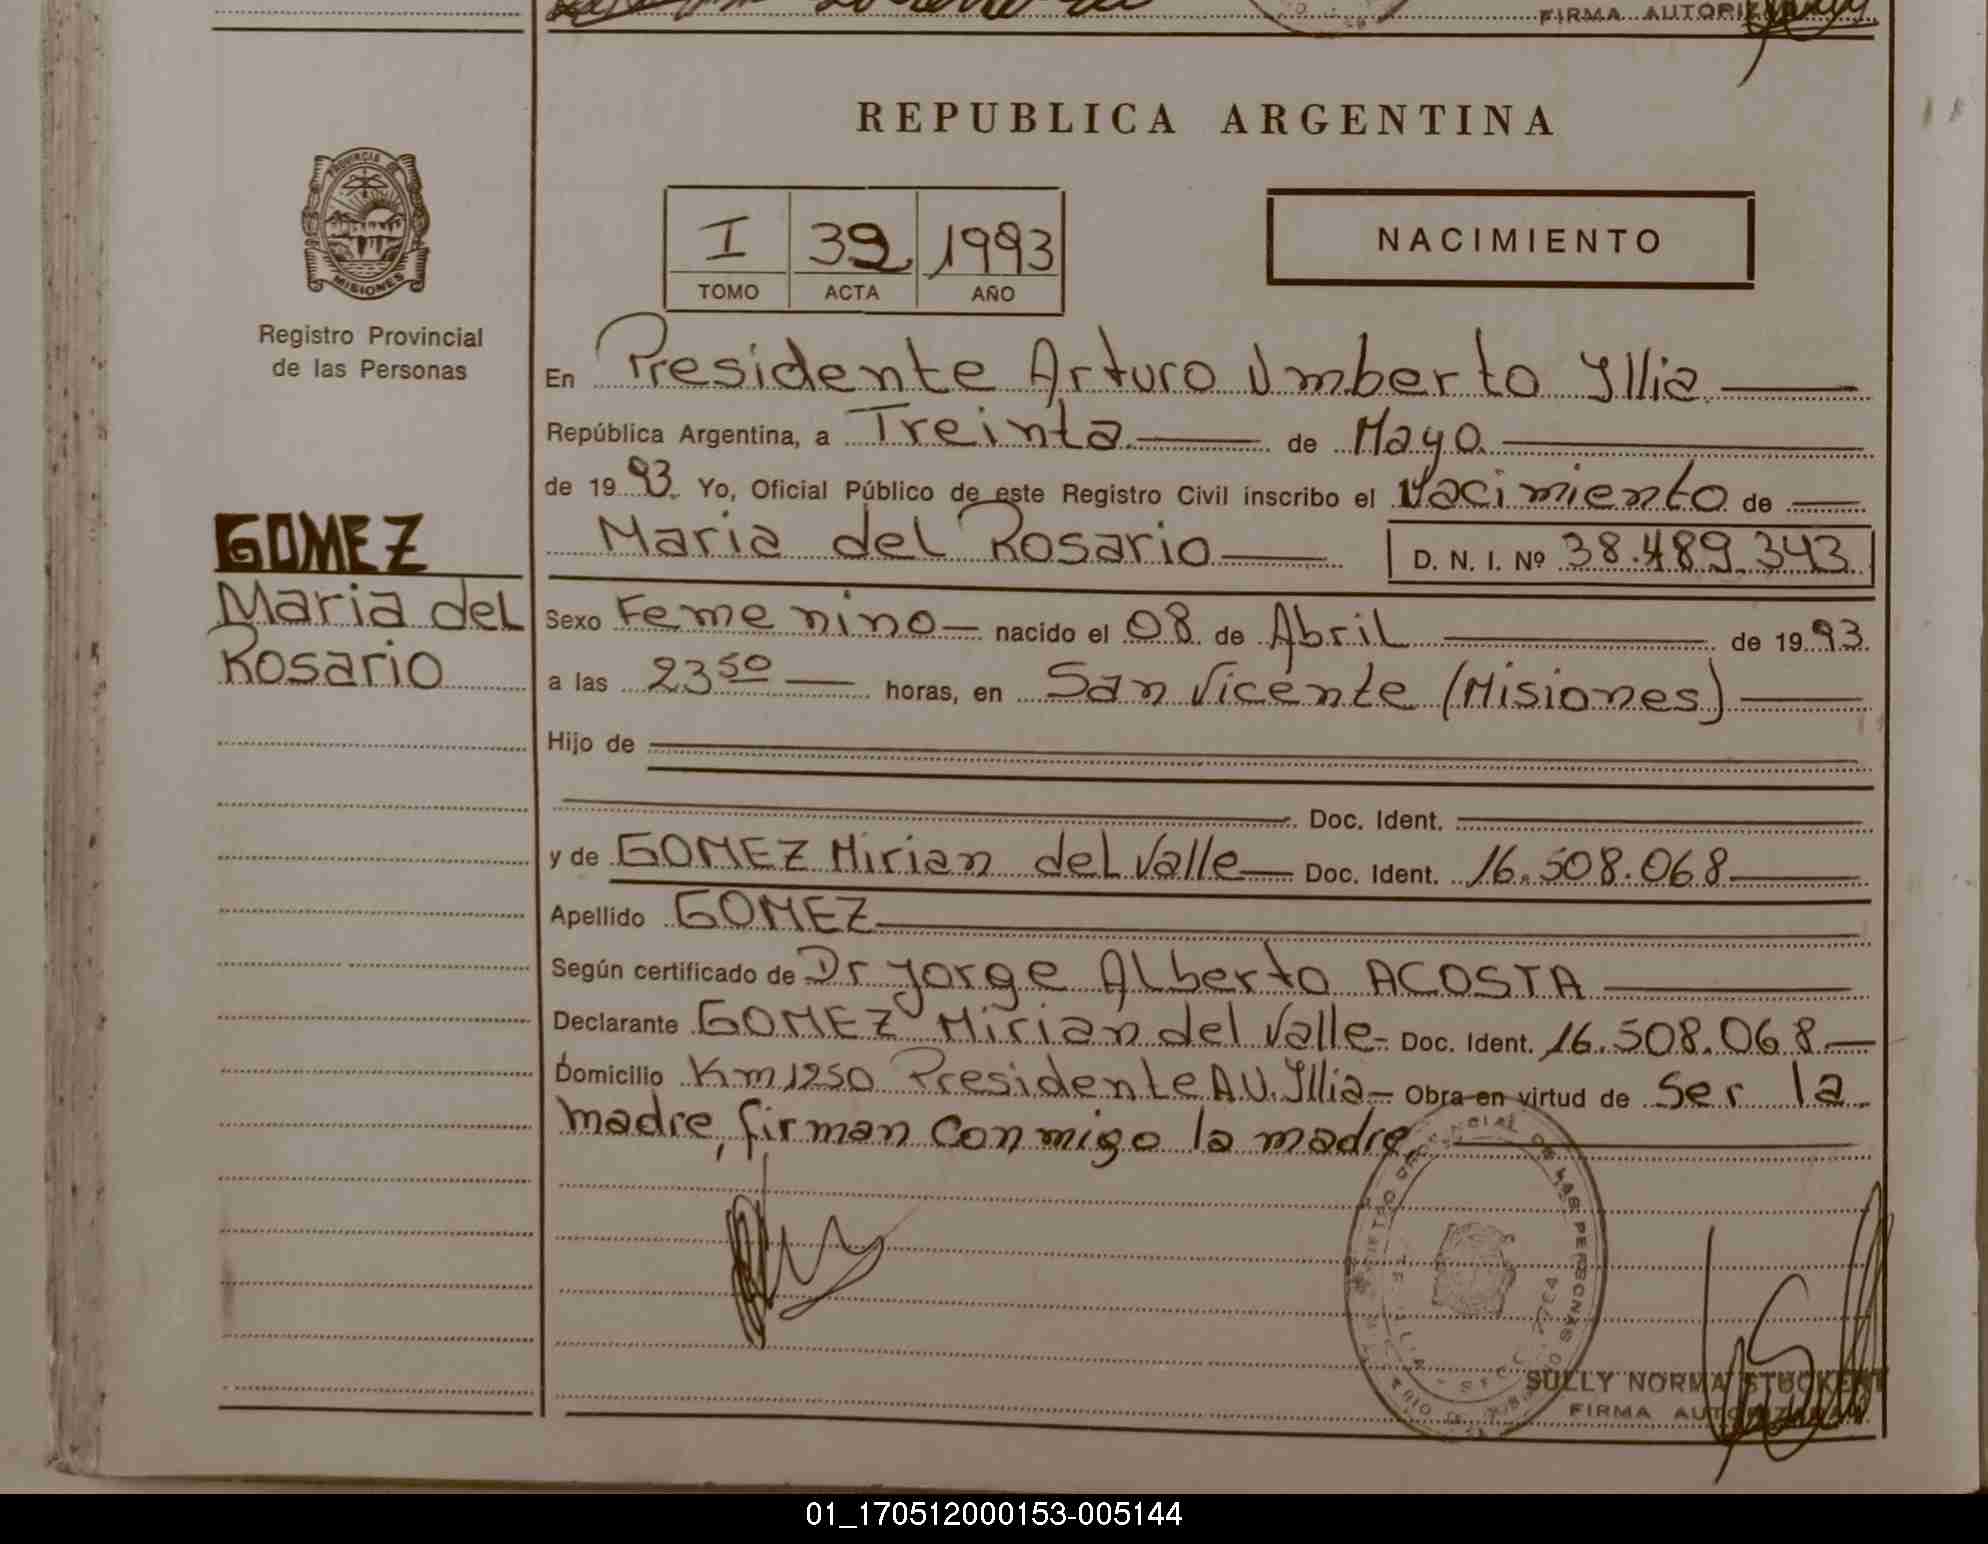 FIRMA AUTORIZADA
REPUBLICA ARGENTINA
PROVINCIA DE
MISIONES
Registro Provincial
de las Personas
I 39 1993
TOMO ACTA AÑO
NACIMIENTO
En Presidente Arturo Umberto Yllia
República Argentina, a Treinta de Mayo
de 1993. Yo, Oficial Público de este Registro Civil inscribo el Nacimiento de
Maria del Rosario D. N. I. Nº 38.489.343
GOMEZ
Maria del
Rosario
Sexo Femenino nacido el 08 de Abril de 1993.
a las 23 50 horas, en San Vicente (Misiones)
Hijo de
Doc. Ident.
y de GOMEZ Mirian del Valle Doc. Ident. 16.508.068
Apellido GOMEZ
Según certificado de Dr Jorge Alberto ACOSTA
Declarante GOMEZ Mirian del Valle Doc. Ident. 16.508.068
Domicilio Km 1250 Presidente A.U. Yllia Obra en virtud de Ser la
madre, firman conmigo la madre.
DE LAS PERSONAS
SULLY NORMA STUCKERT
FIRMA AUTORIZADA
01_170512000153-005144